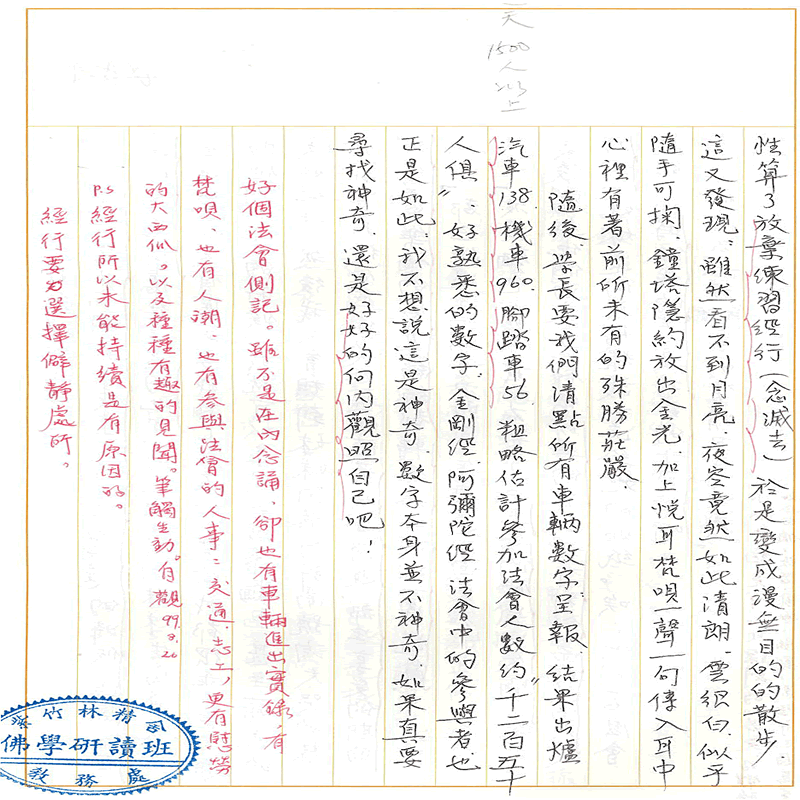 一天
1500
人以上
性算了放棄練習經行(念滅去)於是變成漫無目的的散步.
這又發現:雖然看不到月亮.夜空竟然如此清朗.雲很白.似乎
隨手可掬.鐘塔隱約放出金光.加上悅耳梵唄一聲一句傳入耳中
心裡有著前所未有的殊勝莊嚴.
隨後.學長要我們清點所有車輛數字呈報 結果出爐
汽車138.機車960.腳踏車56.粗略估計參加法會人數約"千二百五十
人俱".好熟悉的數字.金剛經.阿彌陀經 法會中的參與者.也
正是如此:我不想說這是神奇.數字本身並不神奇.如果真要
尋找神奇.還是好好的向內觀照自己吧!
好個法會側記。雖不是在內念誦,卻也有車輛進出實錄,有
梵唄、也有人潮、也有參與法會的人事:交通.志工,更有慰勞
的大西瓜。以及種種有趣的見聞。筆觸生動。自觀99.8.26
P.S 經行所以未能持續是有原因的。
經行要力選擇僻靜處所。
竹林精
佛學研讀班
教務處